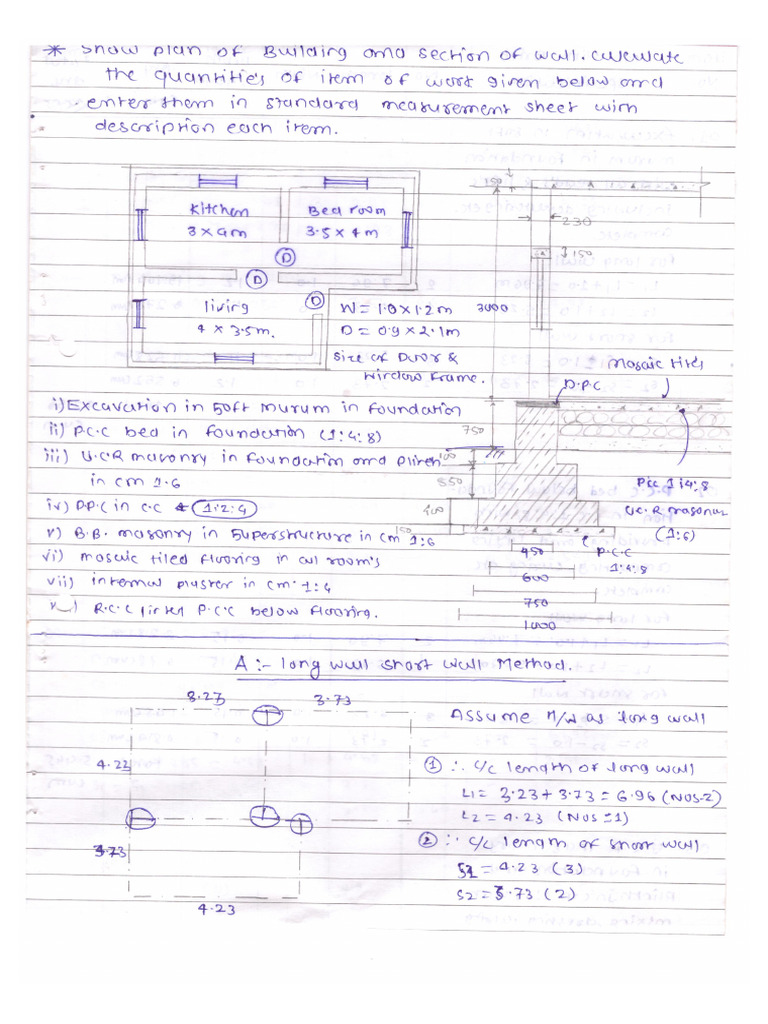 * Show plan of Building and section of wall. calculate
the quantities of item of work given below and
enter them in standard measurement sheet with
description each item.
Kitchen
3 x 4m
Bed room
3.5 x 4m
D
D
D
living
4 x 3.5m.
W = 1.0 x 1.2m
D = 0.9 x 2.1m
Size of Door &
Window Frame.
150
230
150
3000
Mosaic tiles
D.P.C
750
100
550
400
150
P.c.c 1:4:8
U.C.R masonry
(1:6)
P.C.C
1:4:8
450
600
750
1000
i) Excavation in soft murum in foundation
ii) P.C.C bed in foundation (1:4:8)
iii) U.C.R masonry in foundation and plinth
in cm 1:6
iv) D.P.C in c.c (1:2:4)
v) B.B. masonry in superstructure in cm 1:6
vi) mosaic tiled flooring in all room's
vii) internal plaster in cm: 1:4
P.C.C below flooring.
A :- long wall short wall Method.
3.73
4.23
3.73
4.23
Assume H/W as long wall
① ∴ c/c length of long wall
L1 = 3.23 + 3.73 = 6.96 (NOS-2)
L2 = 4.23 (NOS=1)
② ∴ c/c length of short wall
S1 = 4.23 (3)
S2 = 3.73 (2)